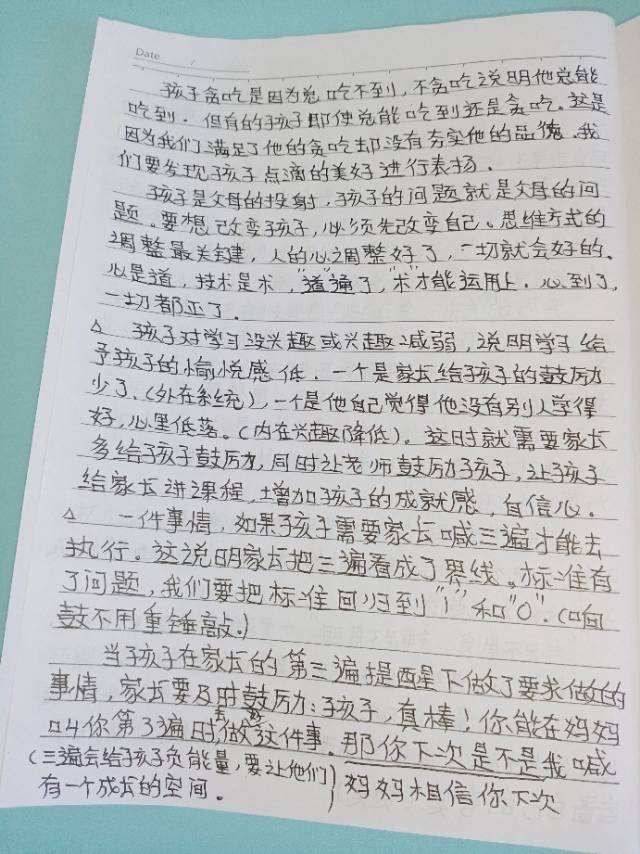 Date /
孩子贪吃是因为总吃不到,不贪吃说明他总能
吃到.但有的孩子即使总能吃到还是贪吃.这是
因为我们满足了他的贪吃却没有夯实他的品德.我
们要发现孩子点滴的美好进行表扬.
孩子是父母的投射,孩子的问题就是父母的问
题.要想改变孩子,必须先改变自己。思维方式的
调整最关键,人的心调整好了,一切就会好的.
心是道,技术是术,"道"通了,"术"才能运用上.心到了,
一切都正了.
△ 孩子对学习没兴趣或兴趣减弱,说明学习给
予孩子的愉悦感低.一个是家长给孩子的鼓励
少了.(外在系统),一个是他自己觉得他没有别人学得
好,心里低落。(内在兴趣降低)。这时就需要家长
多给孩子鼓励,同时让老师鼓励孩子,让孩子
给家长讲课程,增加孩子的成就感,自信心。
△ 一件事情,如果孩子需要家长喊三遍才能去
执行。这说明家长把三遍看成了界线。标准有
了问题,我们要把标准回归到"1"和"0".(响
鼓不用重锤敲.)
当孩子在家长的第三遍提醒下做了要求做的
事情,家长要及时鼓励:孩子,真棒!你能在妈妈
叫你第3遍时去做这件事.那你下次是不是我喊
(三遍会给孩子负能量,要让他们
有一个成长的空间。) 妈妈相信你下次